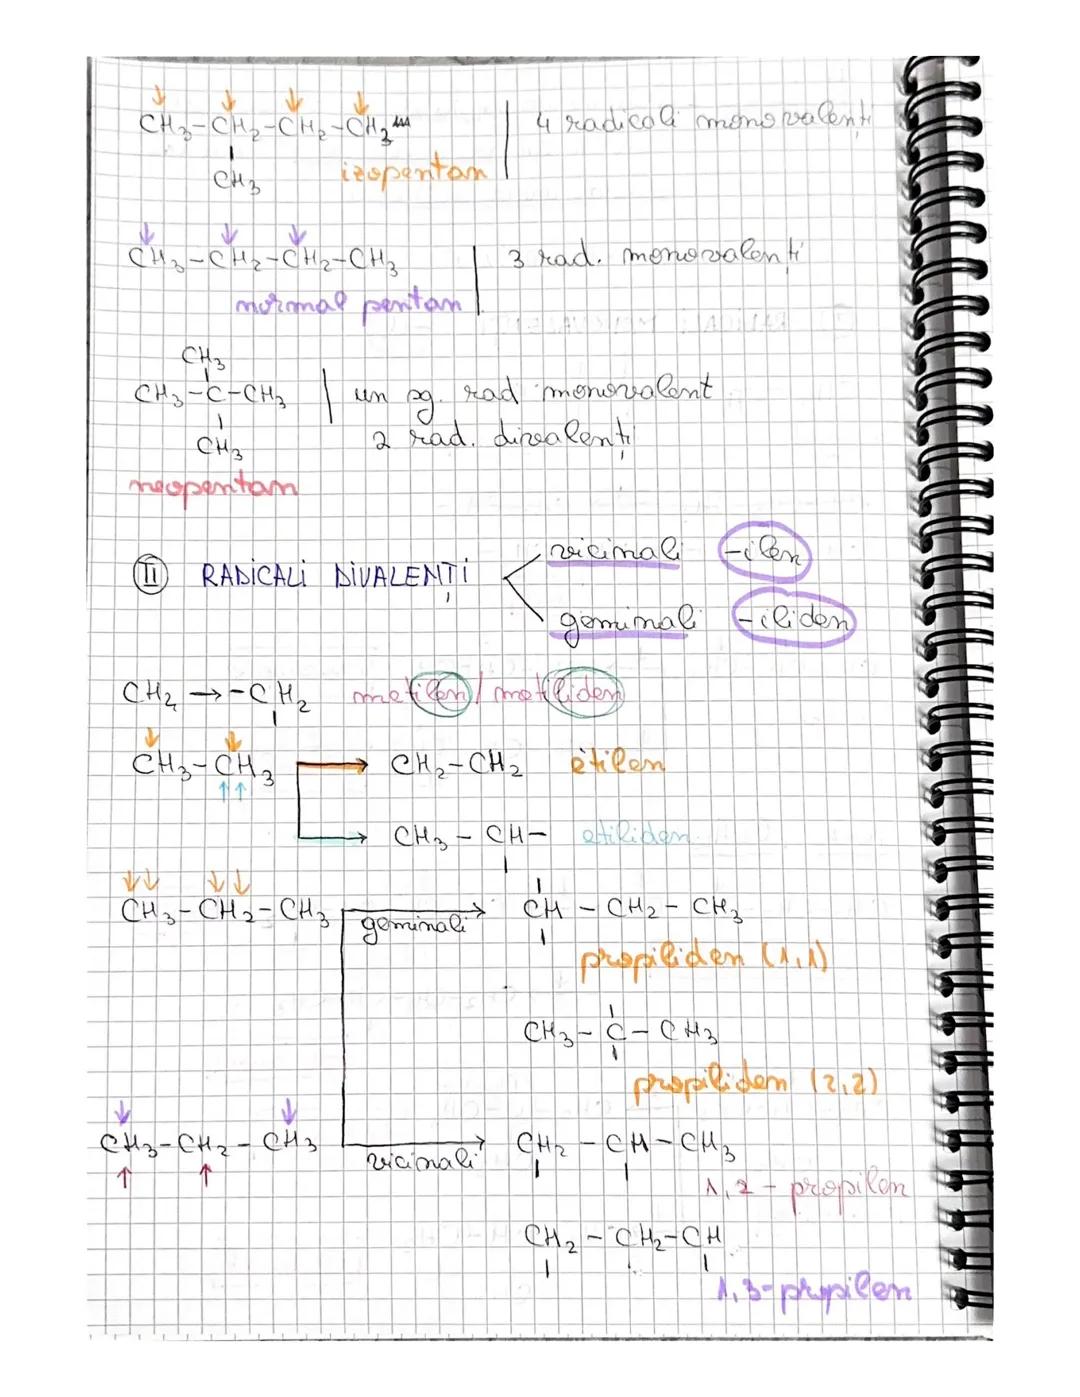 CH₃-CH₂-CH₂-CH₃ | 4 radicali monovalenți
CH₃ izopentan
CH₃-CH₂-CH₂-CH₃ | 3 rad. monovalenți
normal pentan
CH₃
CH₃-C-CH₃ | un sg. rad monovalent
CH₃ 2 rad. divalenți
neopentan
II RADICALI DIVALENȚI
vicinali -ilen
geminali -iliden
CH₄ → -CH₂ metilen / metiliden
CH₃-CH₃ → CH₂-CH₂ etilen
→ CH₃-CH- etiliden
CH₃-CH₂-CH₃ geminali → CH-CH₂-CH₃
propiliden (1,1)
CH₃-C-CH₃
propiliden (2,2)
CH₃-CH₂-CH₃ vicinali → CH₂-CH-CH₃
1,2-propilen
CH₂-CH₂-CH
1,3-propilen